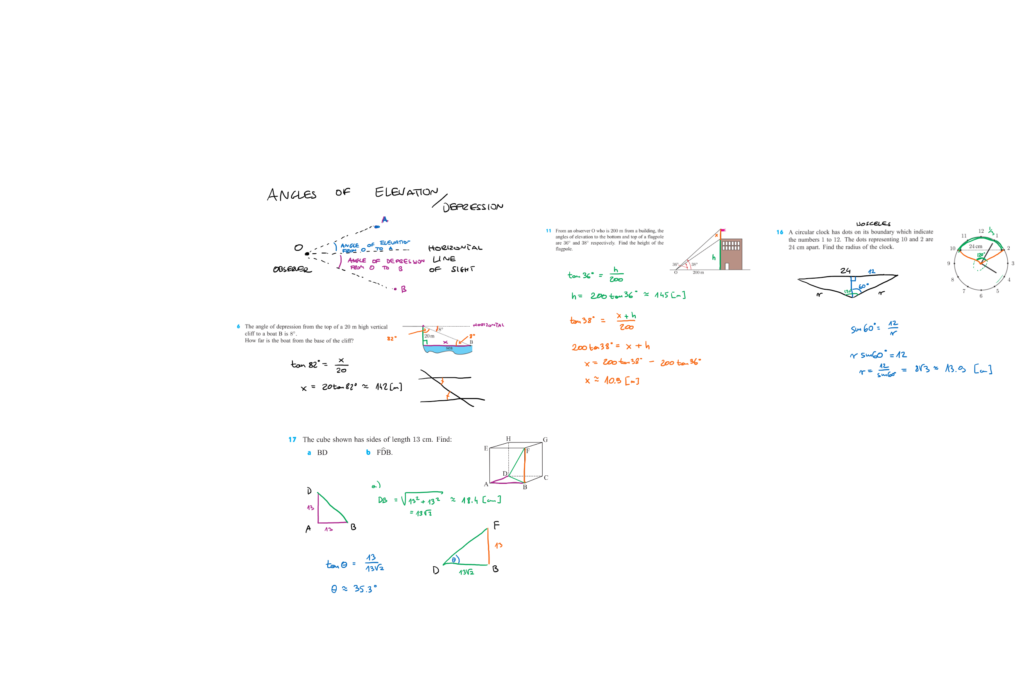 ANGLES OF ELEVATION/
DEPRESSION
A
O
OBSERER
ANGLE OF ELEVATION
FROM O TO A
ANGLE OF DEPRESSION
FROM O TO B
HORIZONTAL
LINE
OF SIGHT
B
6 The angle of depression from the top of a 20 m high vertical
cliff to a boat B is 8°.
How far is the boat from the base of the cliff?
82°
HORIZONTAL
20 m
8°
x
B
tan 82° = x/20
x = 20 tan 82° ≈ 142 [m]
17 The cube shown has sides of length 13 cm. Find:
a BD
b FD̂B.
H
G
E
F
D
C
A
B
D
13
A
13
B
a)
DB = √13² + 13² ≈ 18.4 [cm]
= 13√2
F
13
θ
D
13√2
B
tan θ = 13/13√2
θ ≈ 35.3°
11 From an observer O who is 200 m from a building, the
angles of elevation to the bottom and top of a flagpole
are 36° and 38° respectively. Find the height of the
flagpole.
h
38°
36°
O
200 m
tan 36° = h/200
h = 200 tan 36° ≈ 145 [m]
tan 38° = x + h/200
200 tan 38° = x + h
x = 200 tan 38° - 200 tan 36°
x ≈ 10.9 [m]
16 A circular clock has dots on its boundary which indicate
the numbers 1 to 12. The dots representing 10 and 2 are
24 cm apart. Find the radius of the clock.
12
11
1
10
24 cm
2
9
3
8
4
7
5
6
24
12
60°
r
r
sin 60° = 12/r
r sin 60° = 12
r = 12/sin 60 = 8√3 ≈ 13.9 [cm]